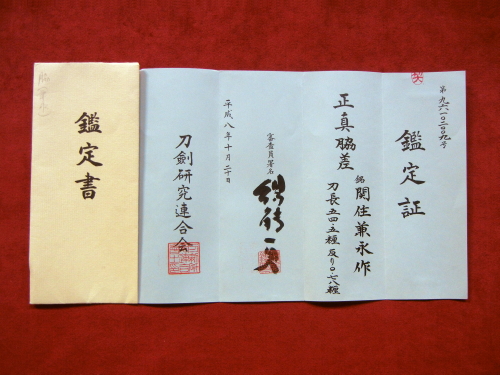 鑑定証
第九六一〇二〇九号
正真脇差
銘 関住兼永作
刀長五四・五糎 反り〇・七八糎
審査員署名
平成八年十月二十日
刀劍研究連合会
鑑定書